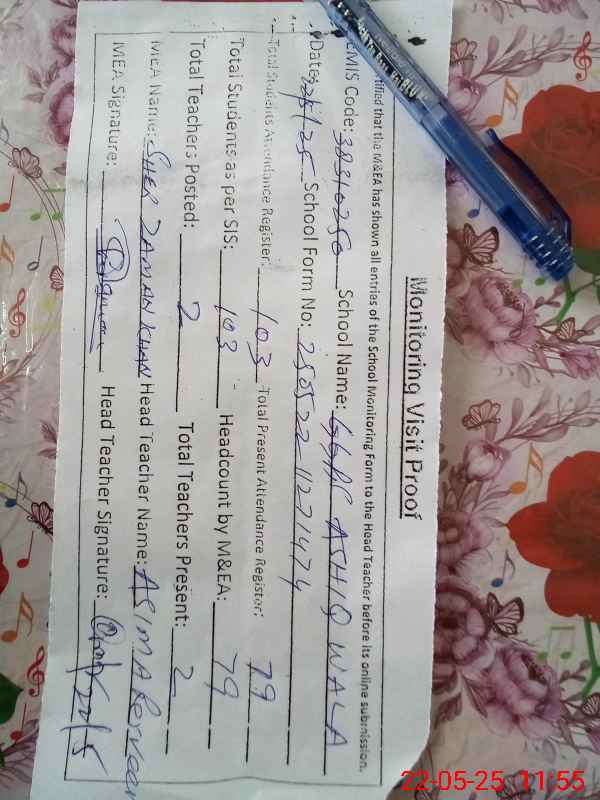 Monitoring Visit Proof
tified that the M&EA has shown all entries of the School Monitoring Form to the Head Teacher before its online submission.
EMIS Code: 38310250 School Name: GGPS ASHIQ WALA
Date: School Form No: 250522 11271474
Total Students Attendance Register: 103 Total Present Attendance Register: 79
Total Students as per SIS: 103 Headcount by M&EA: 79
Total Teachers Posted: 2 Total Teachers Present: 2
MEA Name: SHER ZAMAN KHAN Head Teacher Name: ASIMA Parveen
MEA Signature: Head Teacher Signature:
22-05-25 11:55